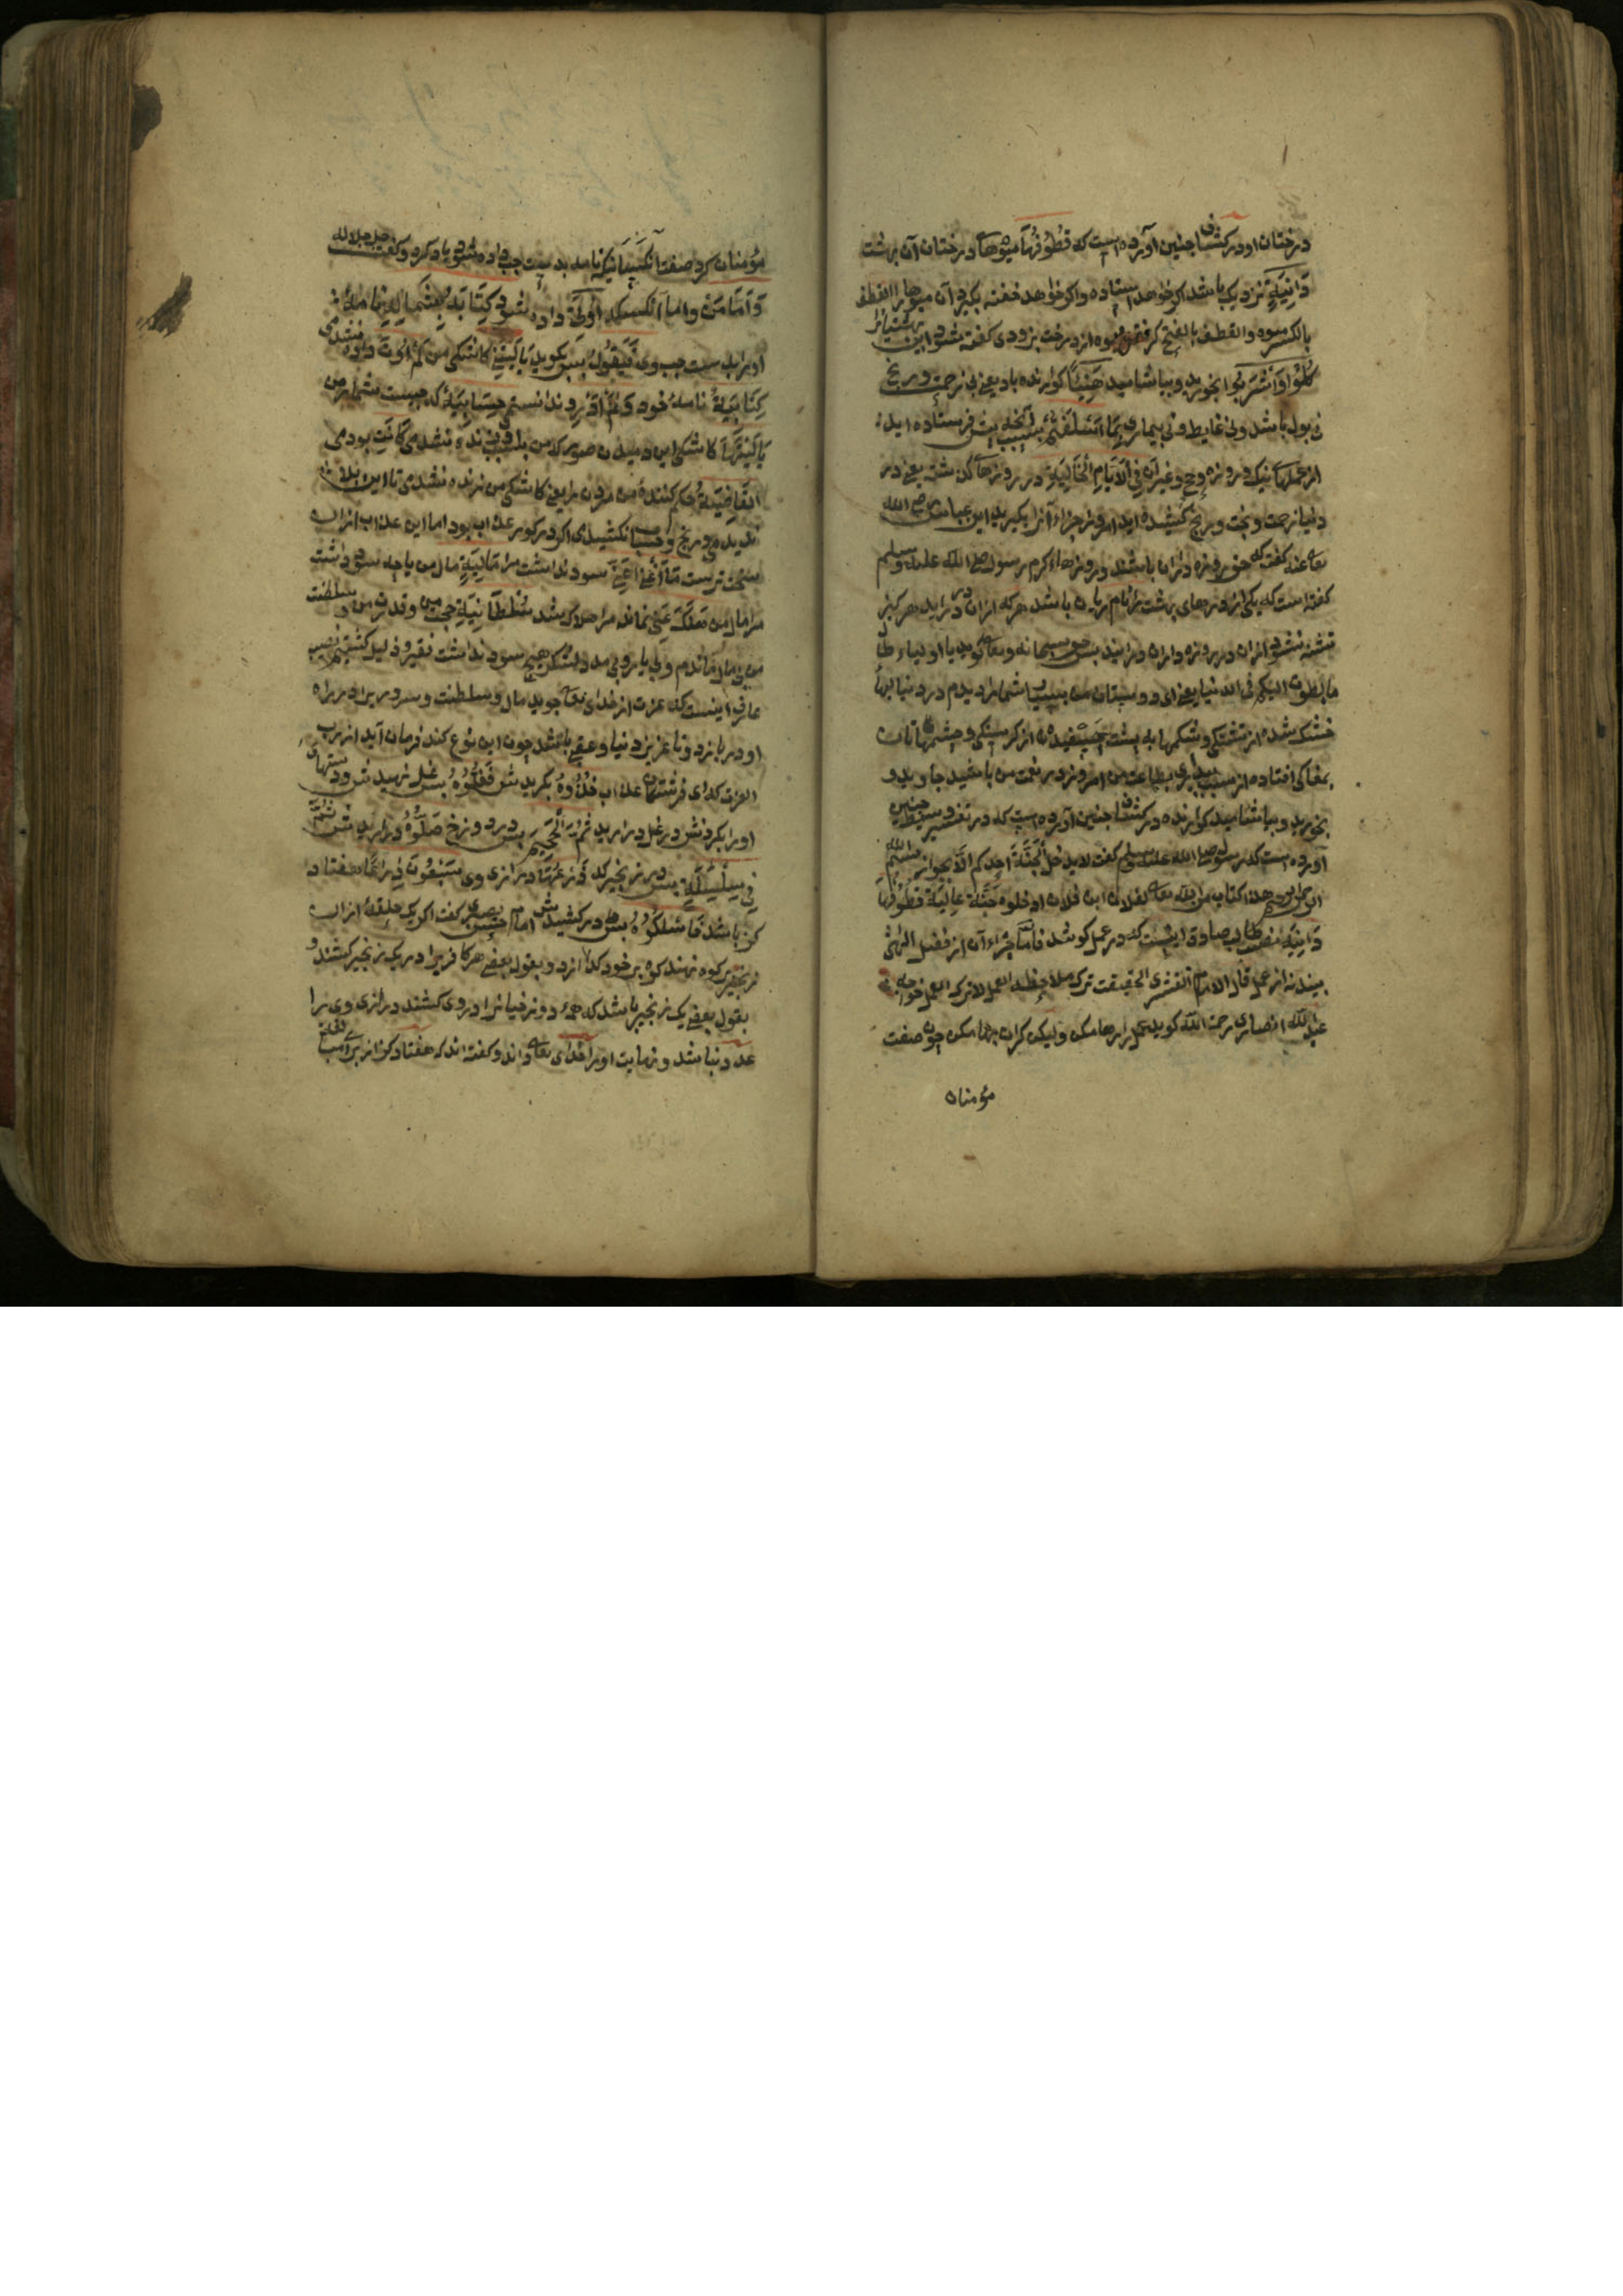 درختان او در کشاف چنین آورده است که قُطُوفُهَا میوهها درختان آن بهشت
دَانِیَةٌ نزدیک باشد اکر خواهد استاده و اکر خواهد خفته بکیرد آن میوها را القطف
بالکسر میوه والقطف بالفتح کرفتن میوه از درخت بزودی کفته شود این بهشتیانرا
کُلُوْا وَاشْرَبُوا بخورید و بیاشامید هَنِیْئًا کوارنده باد یعنی بی زحمت و رنج
نی بول باشد و نی غایط و نی بیماری بِمَا اَسْلَفْتُمْ بسبب آنچه پیش فرستاده اید
از عملهاء نیک و روزه و حج و غیر آن فِی الْاَیَّامِ الْخَالِیَةِ در روزهاء کذشته یعنی در
دنیا زحمت و رنج کشیده اید امروز جزاء آنرا بکیرید ابن عباس رضی الله
تعالی عنه کفت که روزه داران باشند و رسول صلی الله علیه وسلم
کفته است که یکی از درهای بهشت را نام ریان باشد هر که ازان در دراید هرکز
تشنه نشود ازان در روزه داران درایند پس حق سبحانه وتعالی کوید یا اولیاء طا
ما نظرت الیکم فی الدنیا یعنی ای دوستان من شمارا دیدم در دنیا لبها
خشک شده از تشنکی و شکمها به پشت چسپیده از کرسنکی و چشمهاتان
بمغاکی افتاده از سبب بیداری بطاعت من امروز در نعمت من باشید جاوید و
بخورید و بیاشامید کوارنده در کشاف چنین آورده است که در تفسیر وسیط چنین
آورده است که رسول صلی الله علیه وسلم کفت لا یدخل الجنة احدکم الا بجواز بسم الله
الرحمن الرحیم هذا کتاب من الله تعالی لفلان ابن فلان ادخلوه جَنَّة عالِیَة قُطُوْفُهَا
دَانِیَة نصیب طالب صادق اینست که در عمل کوشد فاما جزاء آن از فضل الهی
بیند نه از عمل قال الامام القشیری الحقیقت ترک ملاحظة العمل لا ترک العمل خواجه
عبد الله انصاری رحمة الله کوید عمل را رها مکن ولیکن کران بها مکن چون صفت
مؤمنان
مؤمنان کرد صفت آنکسانیکه نامه بدست چپ داده شود یاد کرد و کفت جل جلاله
وَاَمَّا مَنْ و اما آنکسیکه اُوْتِیَ داده شود کِتَابَهُ بِشِمَالِهِ نامهٔ
او را بدست چپ وی فَیَقُوْلُ پس کوید یَا لَیْتَنِیْ کاشکی من لَمْ اُوْتَ داده نشدمی
کِتَابِیَهْ نامهٔ خود وَلَمْ اَدْرِ و ندانستمی مَا حِسَابِیَهْ که چیست شمار من
یَا لَیْتَهَا کاشکی این دمیدن صور که من بسبب وی زنده نشدمی کَانَتِ بودی
الْقَاضِیَةَ حکم کنندهٔ من مردن را یعنی کاشکی من زنده نشدمی تا این بلا
ندیدمی و رنج و حساب نکشیدی اکر در کور عذاب بود اما این عذاب ازان
سخت ترست مَا اَغْنٰی عَنِّیْ سود نداشت مرا مَالِیَهْ مال من یا چه سود داشت
مرا مال من هَلَکَ عَنِّیْ نماند مرا هلاک شد سُلْطَانِیَهْ حجت من و قدرت من و سلطنت
من بی مال ماندم و بی یار و بی مدد لشکر هیچ سود نداشت فقیر و ذلیل کشتیم نصیب
عارف اینست که عزت از خدای تعالی جوید مال و سلطنت و سروری را در راه
او دربازد و تا عزیز دنیا و عقبی باشد چون این نوع کند فرمان آید از رب
العزت که ای فرشتهکان عذاب خُذُوْهُ بکیریدش فَغُلُّوْهُ پس غل نهیدش و دستهای
او را بکردنش در غل درارید ثُمَّ الْجَحِیْمَ پس در دوزخ صَلُّوْهُ درارید ش ثُمَّ
فِیْ سِلْسِلَةٍ پس در زنجیر که ذَرْعُهَا درازی وی سَبْعُوْنَ ذِرَاعًا هفتاد
کز باشد فَاسْلُکُوْهُ پس درکشیدش امام حسن بصری کفت اکر یک حلقهٔ ازان
زنجیر بر کوه نهند کوه بر خود کدازد و بقول بعضی هر کافریرا در یک زنجیر کشند و
بقول بعضی یک زنجیر باشد که همهٔ دوزخیانرا در وی کشند درازی وی را
عدد نباشد و نهایت او را خدای تعالی داند و کفته اند که هفتاد کز از برای